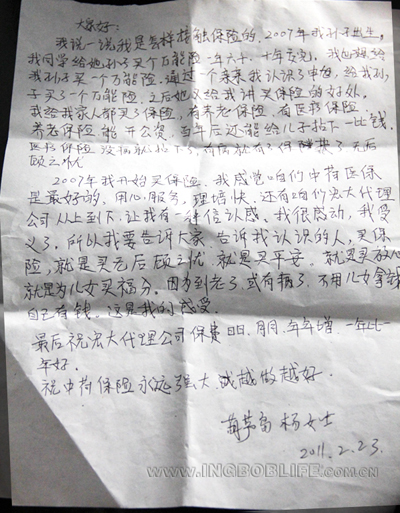 大家好:
我说一说我是怎样接触保险的,2007年我孙子出生,
我同学给她孙子买个万能险一年六千,十年交完,我也想给
我孙子买一个万能险,通过一个亲亲我认识了中荷,给我孙
子买了一个万能险,之后她又给我讲买保险的好处,
我给我家人都买了保险,有养老保险,有医疗保险,
养老保险能开公资,百年后还能给儿子拾下一比钱,
医疗保险,没病就拾下了,有病就有了保解决了无后
顾之忧
2007年我开始买保险,我感觉咱们中荷医保
是最好的,用心服务,理培快,还有咱们宏大代理
公司从上到下,让我有一种信认感,我很感动,我受
义了,所以我要告诉大家 告诉我认识的人,买保
险,就是买无后顾之忧 就是买平安 就是买放心
就是为儿女买福分,因为到老了,或有病了,不用儿女拿钱
自己有钱,这是我的感受,
最后祝宏大代理公司保费日日、月月、年年增,一年比一
年好,
祝中荷保险永远强大 越做越好.
杨女士
2011.2.23.
WWW.INGBOBLIFE.COM.CN